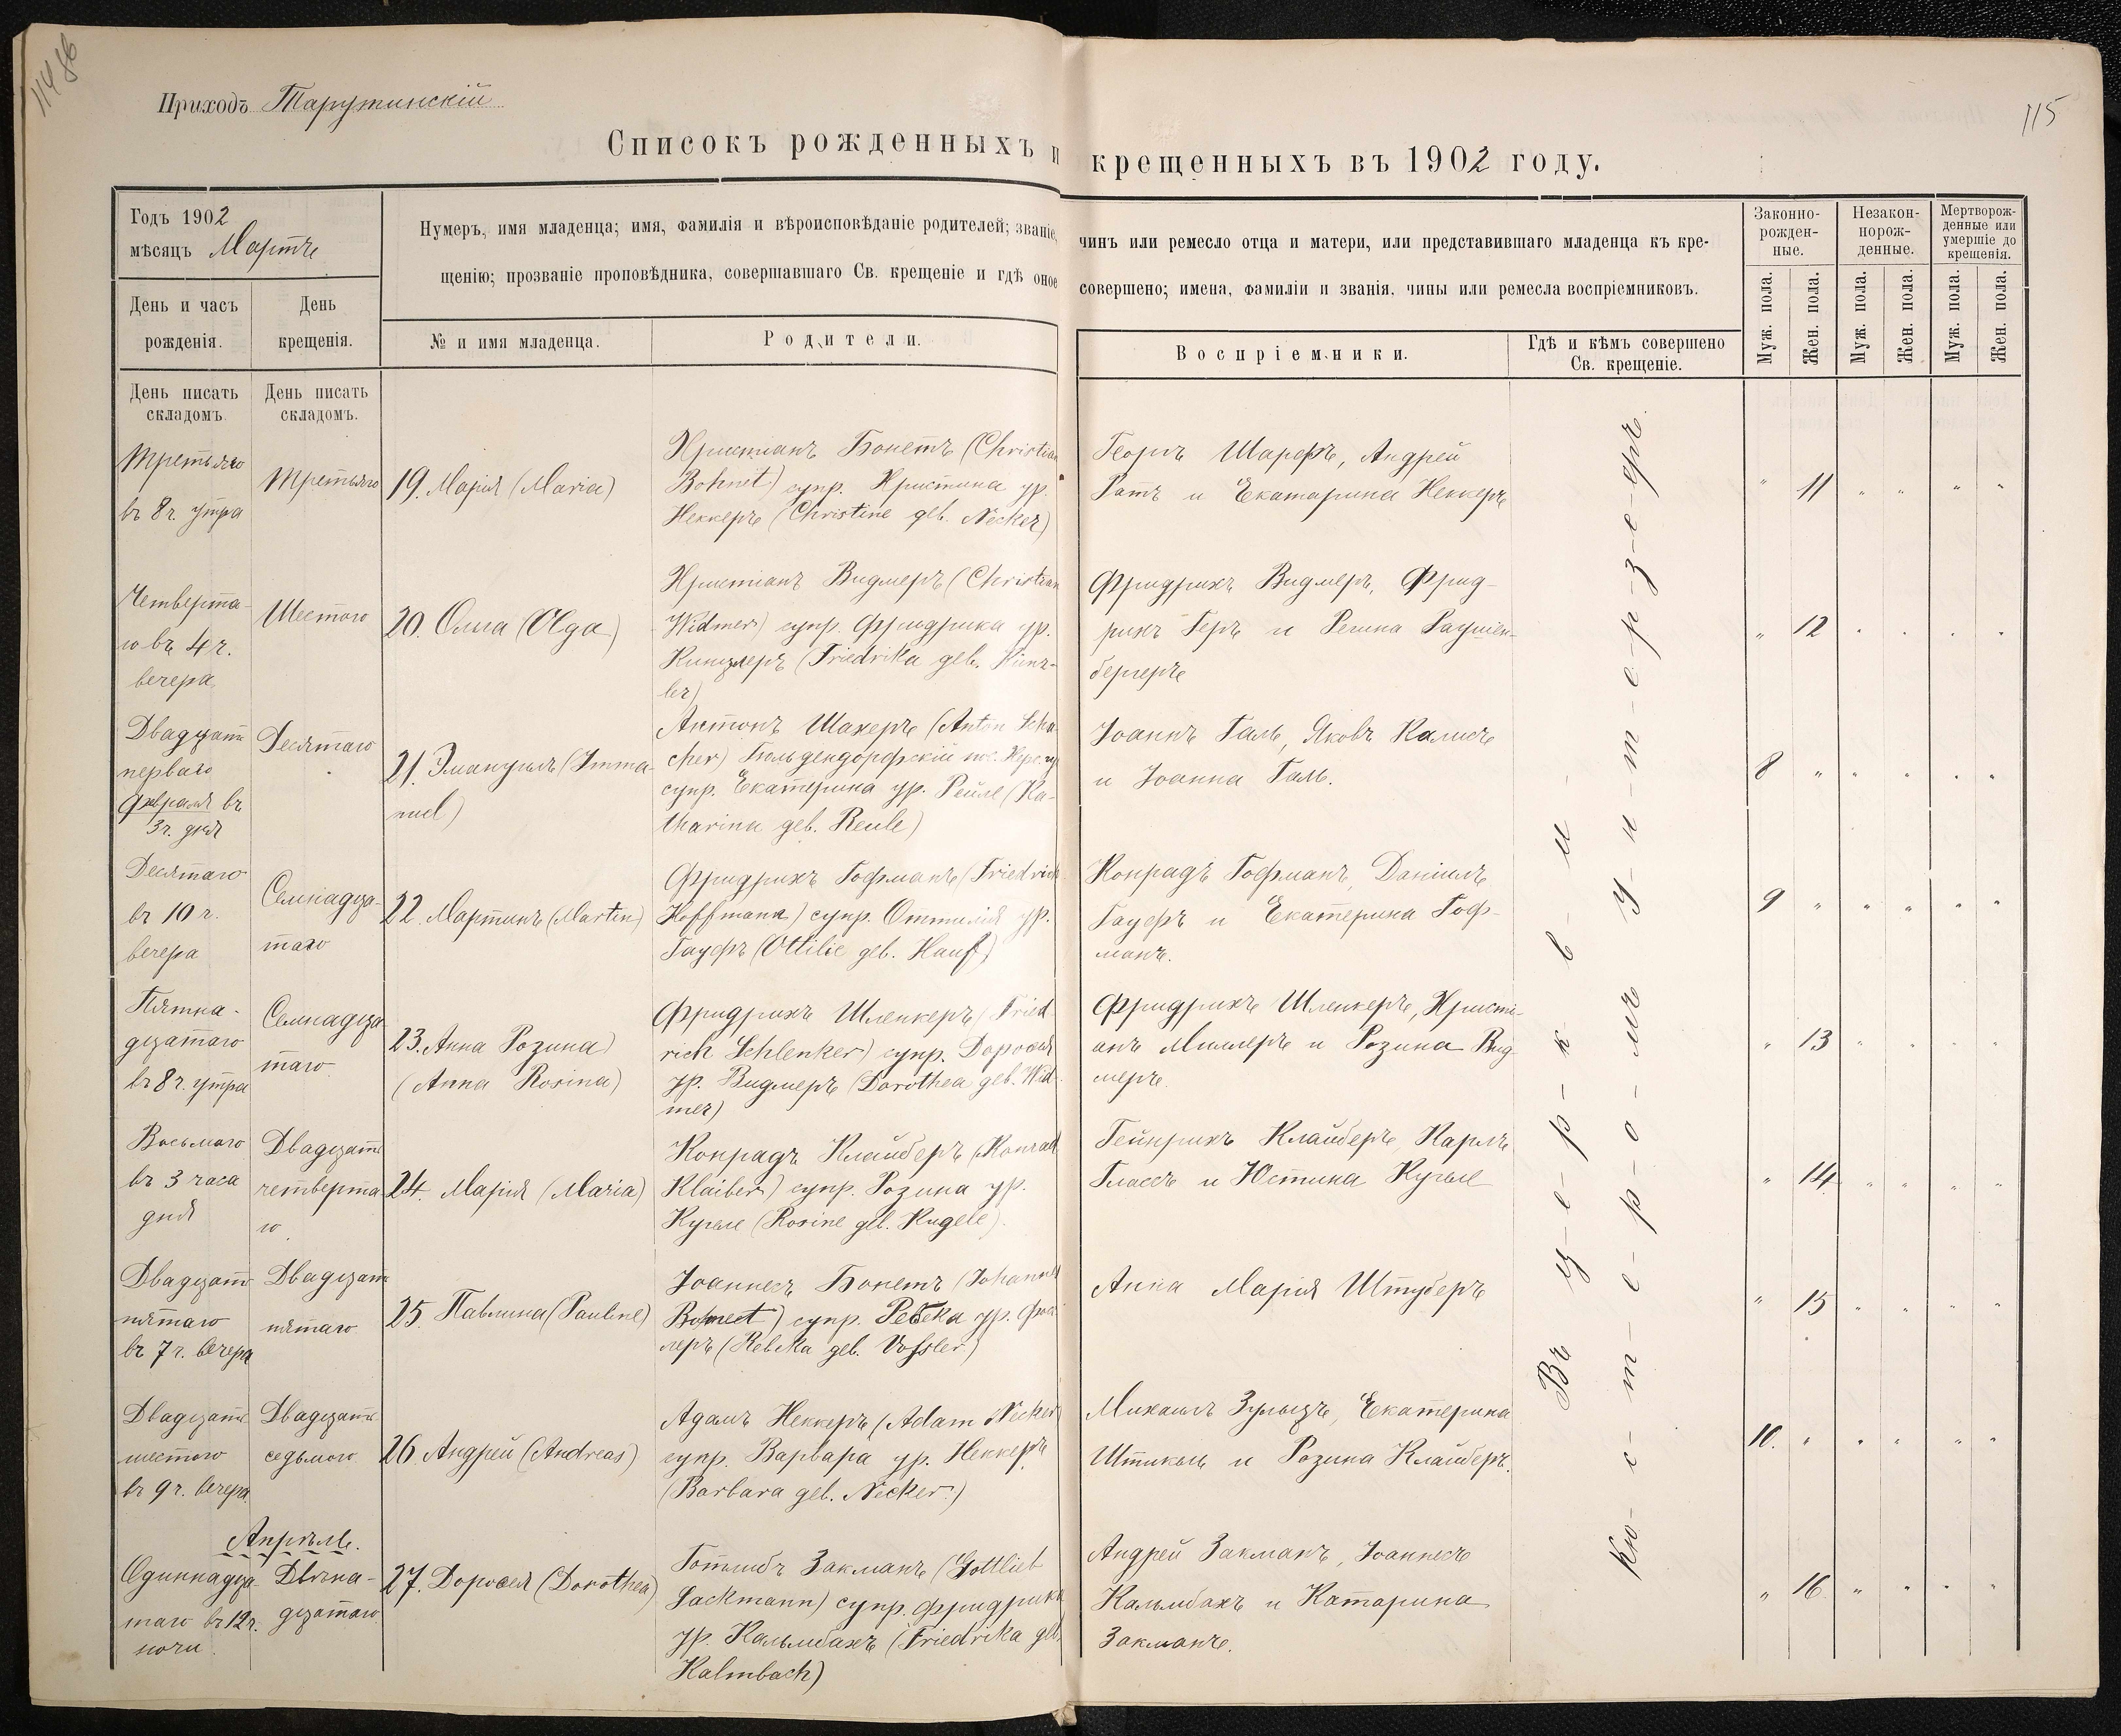 114 об
115
Приходъ Тарутинскій
Списокъ рожденныхъ и крещенныхъ въ 1902 году.
Годъ 1902
мѣсяцъ Мартъ
Нумеръ, имя младенца; имя, фамилія и вѣроисповѣданіе родителей; званіе, чинъ или ремесло отца и матери, или представившаго младенца къ кре-
щенію; прозваніе проповѣдника, совершавшаго Св. крещеніе и гдѣ оное совершено; имена, фамиліи и званія, чины или ремесла воспріемниковъ.
Законно-
рожден-
ные.
Незакон-
норож-
денные.
Мертворож-
денные или
умершіе до
крещенія.
День и часъ
рожденія.
День
крещенія.
№ и имя младенца.
Родители.
Воспріемники.
Гдѣ и кѣмъ совершено
Св. крещеніе.
Муж. пола.
Жен. пола.
Муж. пола.
Жен. пола.
Муж. пола.
Жен. пола.
День писать
складомъ.
День писать
складомъ.
Третьяго
въ 8 ч. утра
Третьяго
19. Марія (Maria)
Христіанъ Бонетъ (Christian
Bohnet) супр. Христина ур.
Неккеръ (Christine geb. Necker)
Георгъ Шарфъ, Андрей
Ратъ и Екатарина Неккеръ
" 11 " " " "
Четверта-
го въ 4 ч.
вечера
Шестого
20. Олга (Olga)
Христіанъ Видмеръ (Christian
Widmer) супр. Фридрика ур.
Кинцлеръ (Friedrika geb. Künz-
ler)
Фридрихъ Видмеръ, Фрид-
рихъ Геръ и Регина Раушен-
бергеръ
" 12 " " " "
Двадцать
перваго
февраля въ
3 ч. дня
Десятаго
21. Эмануилъ (Imma-
nuel)
Антонъ Шахеръ (Anton Scha-
cher) Гольдендорфскій пос. Херс. гу
супр. Екатерина ур. Рейле (Ka-
tharina geb. Reule)
Іоаннъ Галь, Яковъ Калисъ
и Іоанна Галь.
8 " " " " "
Десятаго
въ 10 ч.
вечера
Семнадца-
таго
22. Мартинъ (Martin)
Фридрихъ Гофманъ (Friedrich
Hoffmann) супр. Оттилія ур.
Гауфъ (Ottilie geb. Hauf)
Конрадъ Гофманъ, Даніилъ
Гауфъ и Екатерина Гоф-
манъ.
9 " " " " "
Пятна-
дцатаго
въ 8 ч. утра
Семнадца
таго
23. Анна Розина
(Anna Rosina)
Фридрихъ Шленкеръ (Fried-
rich Schlenker) супр. Доротея
ур. Видмеръ (Dorothea geb. Wid-
mer)
Фридрихъ Шленкеръ, Христі-
анъ Миллеръ и Розина Вид
меръ.
" 13 " " " "
Восьмаго
въ 3 часа
дня
Двадцать
четверта-
го
24. Марія (Maria)
Конрадъ Клайберъ (Konrad
Klaiber) супр. Розина ур.
Кугеле (Rosine geb. Kugele).
Гейнрихъ Клайберъ, Карлъ
Глассъ и Юстина Кугеле
" 14 " " " "
Двадцать
пятаго
въ 7 ч. вечера
Двадцать
пятаго
25. Павлина (Pauline)
Іоаннесъ Бонетъ (Johannes
Bohnet) супр. Ребека ур. Фос
леръ (Rebeka geb. Vossler)
Анна Марія Штуберъ
" 15 " " " "
Двадцать
шестого
въ 9 ч. вечера
Двадцать
седьмого
26 Андрей (Andreas)
Адамъ Неккеръ (Adam Necker)
супр. Варвара ур. Неккеръ
(Barbara geb. Necker)
Михаилъ Зульцъ, Екатерина
Штикель и Розина Клайберъ.
10. " " " " "
Апрѣль.
Одиннадца-
таго въ 12 ч.
ночи
Двѣна-
дцатаго
27. Доротея (Dorothea)
Готлибъ Закманъ (Gottlieb
Sackmann) супр. Фридрика
ур. Кальмбахъ (Friedrika geb.
Kalmbach)
Андрей Закманъ, Іоаннесъ
Кальмбахъ и Катарина
Закманъ.
" 16 " " " "
Въ ц-е-р-к-в-и-
Кю-с-т-е-р-о-мъ У-н-т-е-р-з-е-еръ.